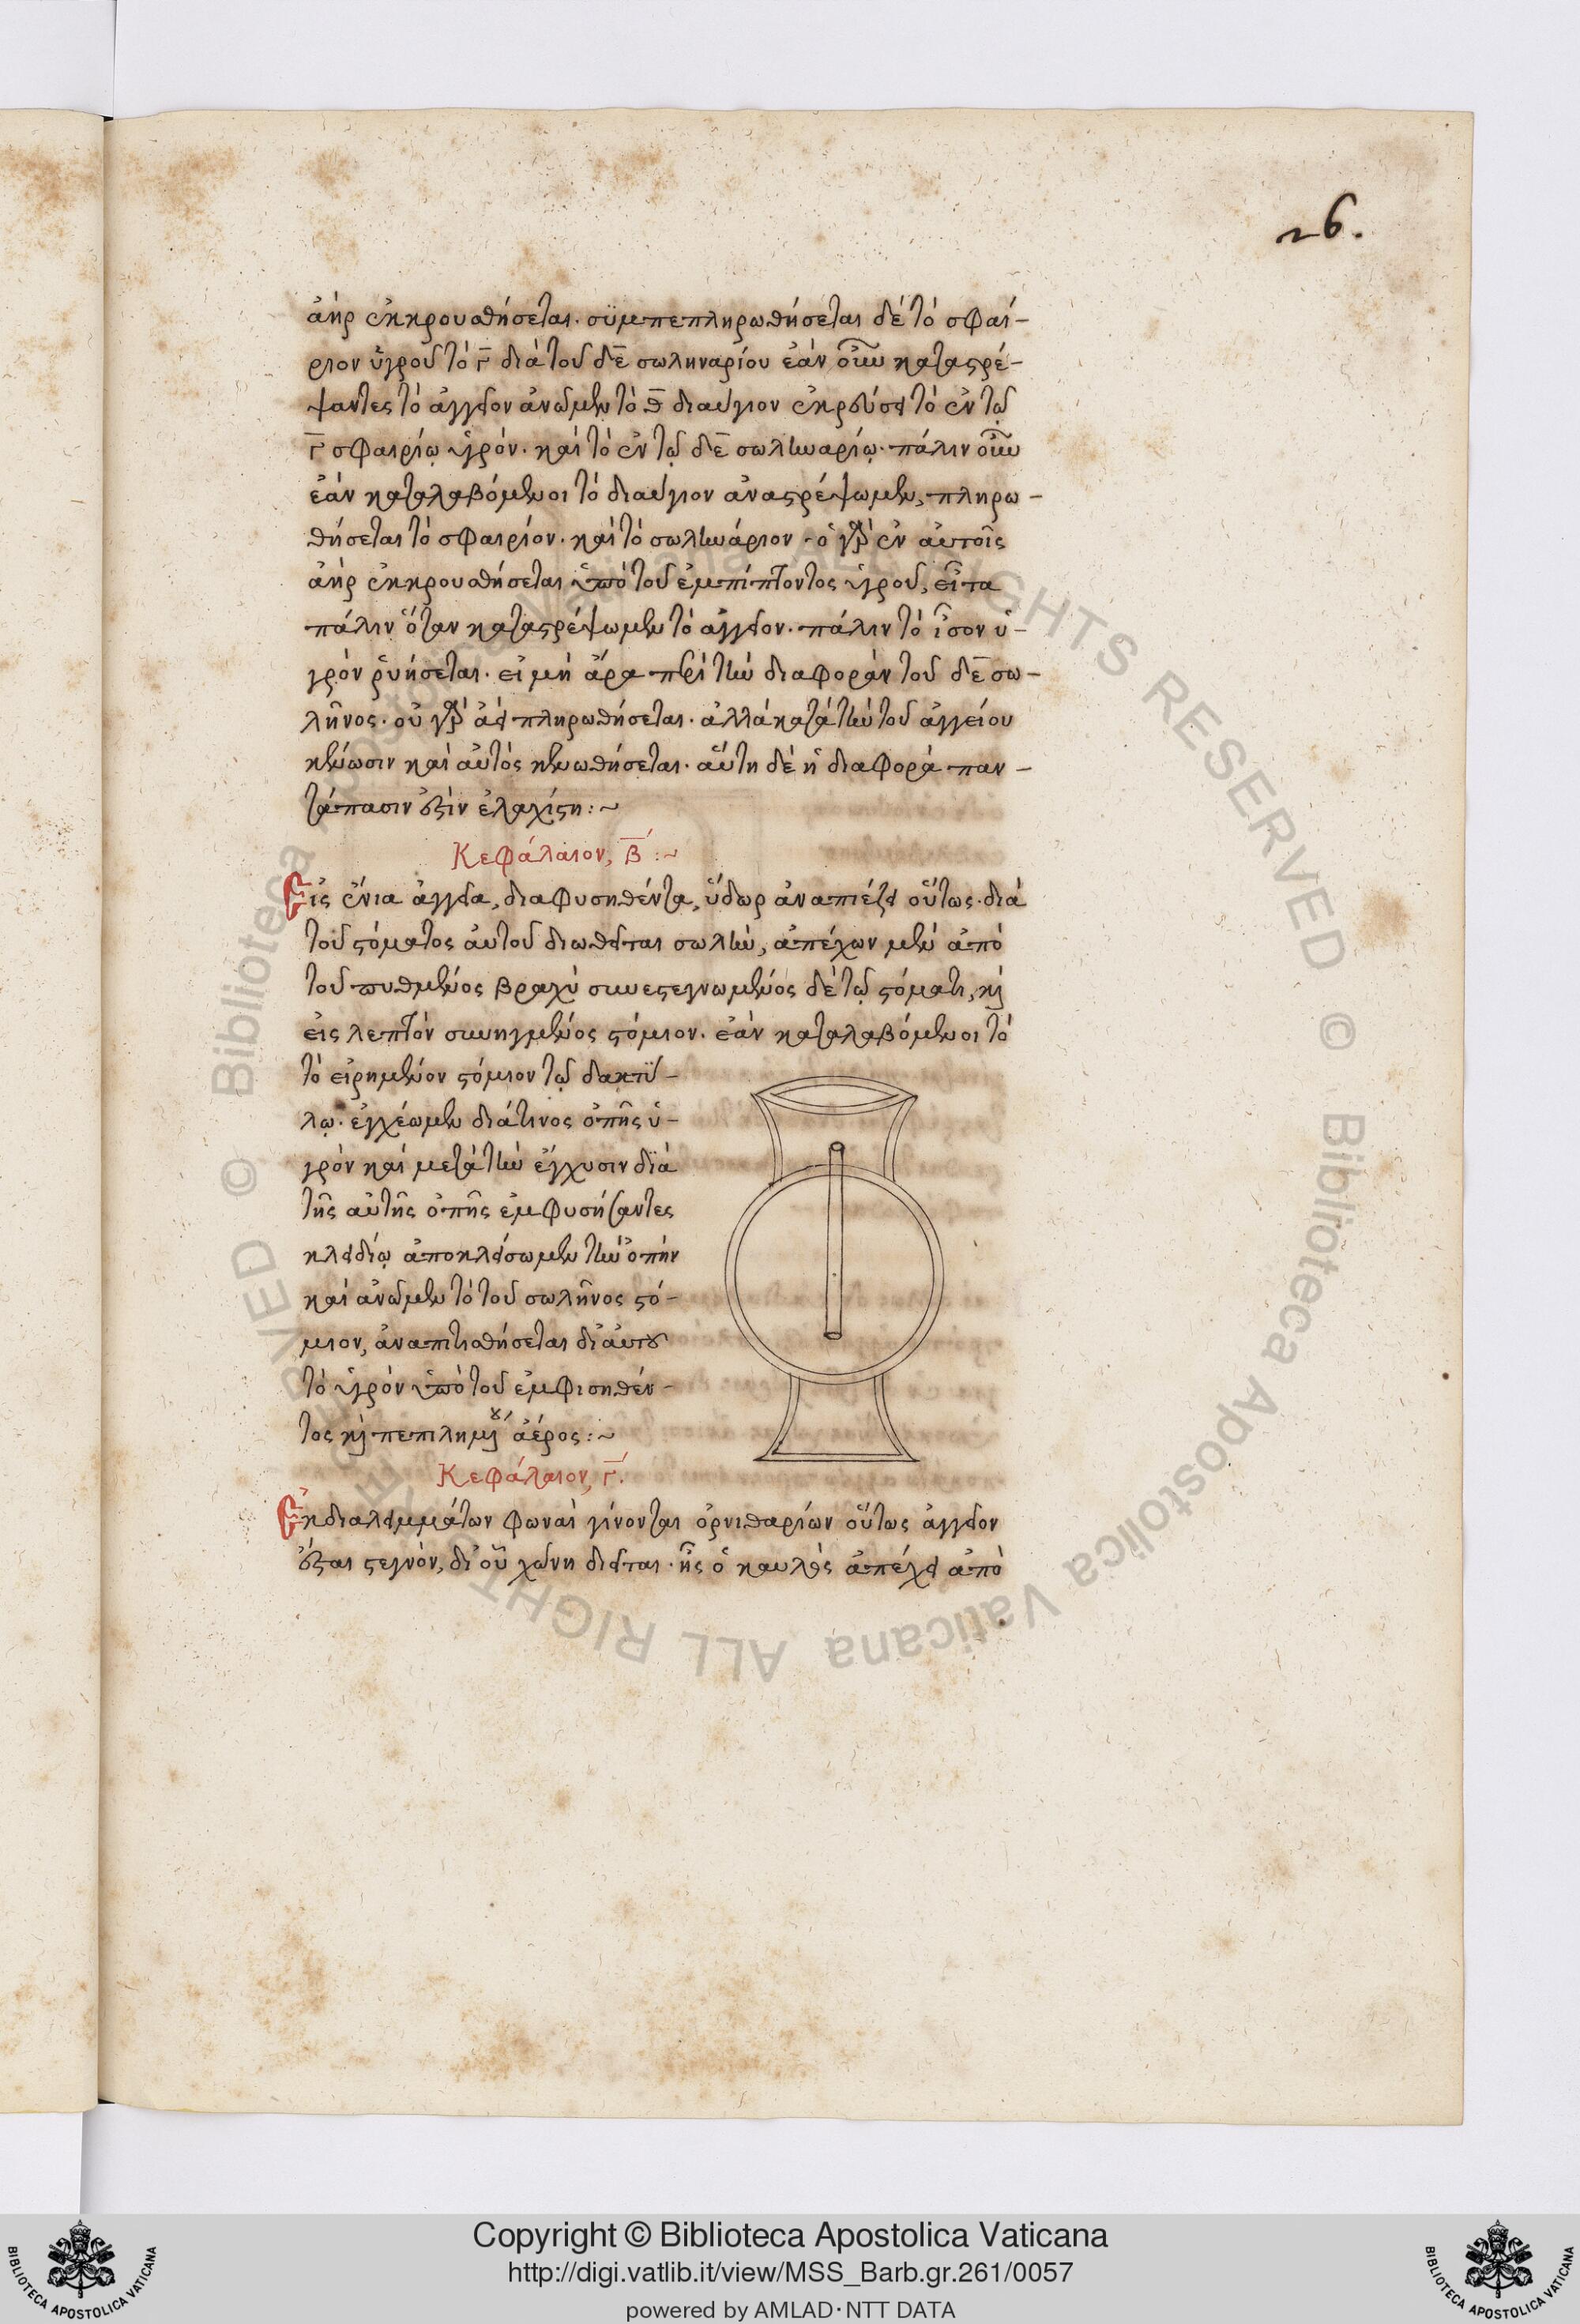 26.
ἀὴρ ἐκκρουσθήσεται· συμπεπληρωθήσεται δὲ τὸ σφαί-
ριον ὑγροῦ τὸ γ̅ διὰ τοῦ δε̅ σωληναρίου ἐὰν οὖν καταστρέ-
ψαντες τὸ ἀγγεῖον ἀνῶμεν τὸ θ̅ διαύγιον ἐκρεύσει τὸ ἐν τῷ
γ̅ σφαιρίῳ ὑγρόν· καὶ τὸ ἐν τῷ δε̅ σωληναρίῳ· πάλιν οὖν
ἐὰν καταλαβόμενοι τὸ διαύγιον ἀναστρέψωμεν, πληρω-
θήσεται τὸ σφαιρίον· καὶ τὸ σωληνάριον· ὁ γὰρ ἐν αὐτοῖς
ἀὴρ ἐκκρουσθήσεται ὑπὸ τοῦ ἐμπίπτοντος ὑγροῦ, εἶτα
πάλιν ὅταν καταστρέψωμεν τὸ ἀγγεῖον· πάλιν τὸ ἶσον ὑ-
γρὸν ῥυήσεται· εἰ μὴ ἄρα περὶ τὴν διαφορὰν τοῦ δε̅ σω-
λῆνος· οὐ γὰρ ἀεὶ πληρωθήσεται· ἀλλὰ κατὰ τὴν τοῦ ἀγγείου
κένωσιν καὶ αὐτὸς κενωθήσεται· αὕτη δὲ ἡ διαφορὰ παν-
τάπασιν ἐστὶν ἐλαχίστη:~
Κεφάλαιον, β̅:~
Εἰς ἔνια ἀγγεῖα, διαφυσηθέντα, ὕδωρ ἀναπιέζει οὕτως· διὰ
τοῦ στόματος αὐτοῦ διωθεῖται σωλὴν, ἀπέχων μὲν ἀπὸ
τοῦ πυθμένος βραχὺ συνεστεγνωμένος δὲ τῷ στόματι, καὶ
εἰς λεπτὸν συνηγμένος στόμιον· ἐὰν καταλαβόμενοι τὸ
τὸ εἰρημένον στόμιον τῷ δακτύ-
λῳ· ἐγχέωμεν διά τινος ὀπῆς ὑ-
γρὸν καὶ μετὰ τὴν ἔγχυσιν διὰ
τῆς αὐτῆς ὀπῆς ἐμφυσήσαντες
κλειδίῳ ἀποκλείσωμεν τὴν ὀπὴν
καὶ ἀνῶμεν τὸ τοῦ σωλῆνος στό-
μιον, ἀναπιτισθήσεται δι αὐτοῦ
τὸ ὑγρὸν ὑπὸ τοῦ ἐμφισηθέν-
τος καὶ πεπιλημένου ἀέρος:~
Κεφάλαιον, γ̅.
Ἐκ διαλειμμάτων φωναὶ γίνονται ὀρνιθαρίων οὕτως ἀγγεῖον
ἔσται στεγνὸν, δι οὗ χώνη διεῖται· ἧς ὁ καυλὸς ἀπέχει ἀπὸ
© Biblioteca Apostolica Vaticana ALL RIGHTS RESERVED
© Biblioteca Apostolica Vaticana ALL RIGHT
Copyright © Biblioteca Apostolica Vaticana
http://digi.vatlib.it/view/MSS_Barb.gr.261/0057
powered by AMLAD·NTT DATA
BIBLIOTECA APOSTOLICA VATICANA
BIBLIOTECA APOSTOLICA VATICANA